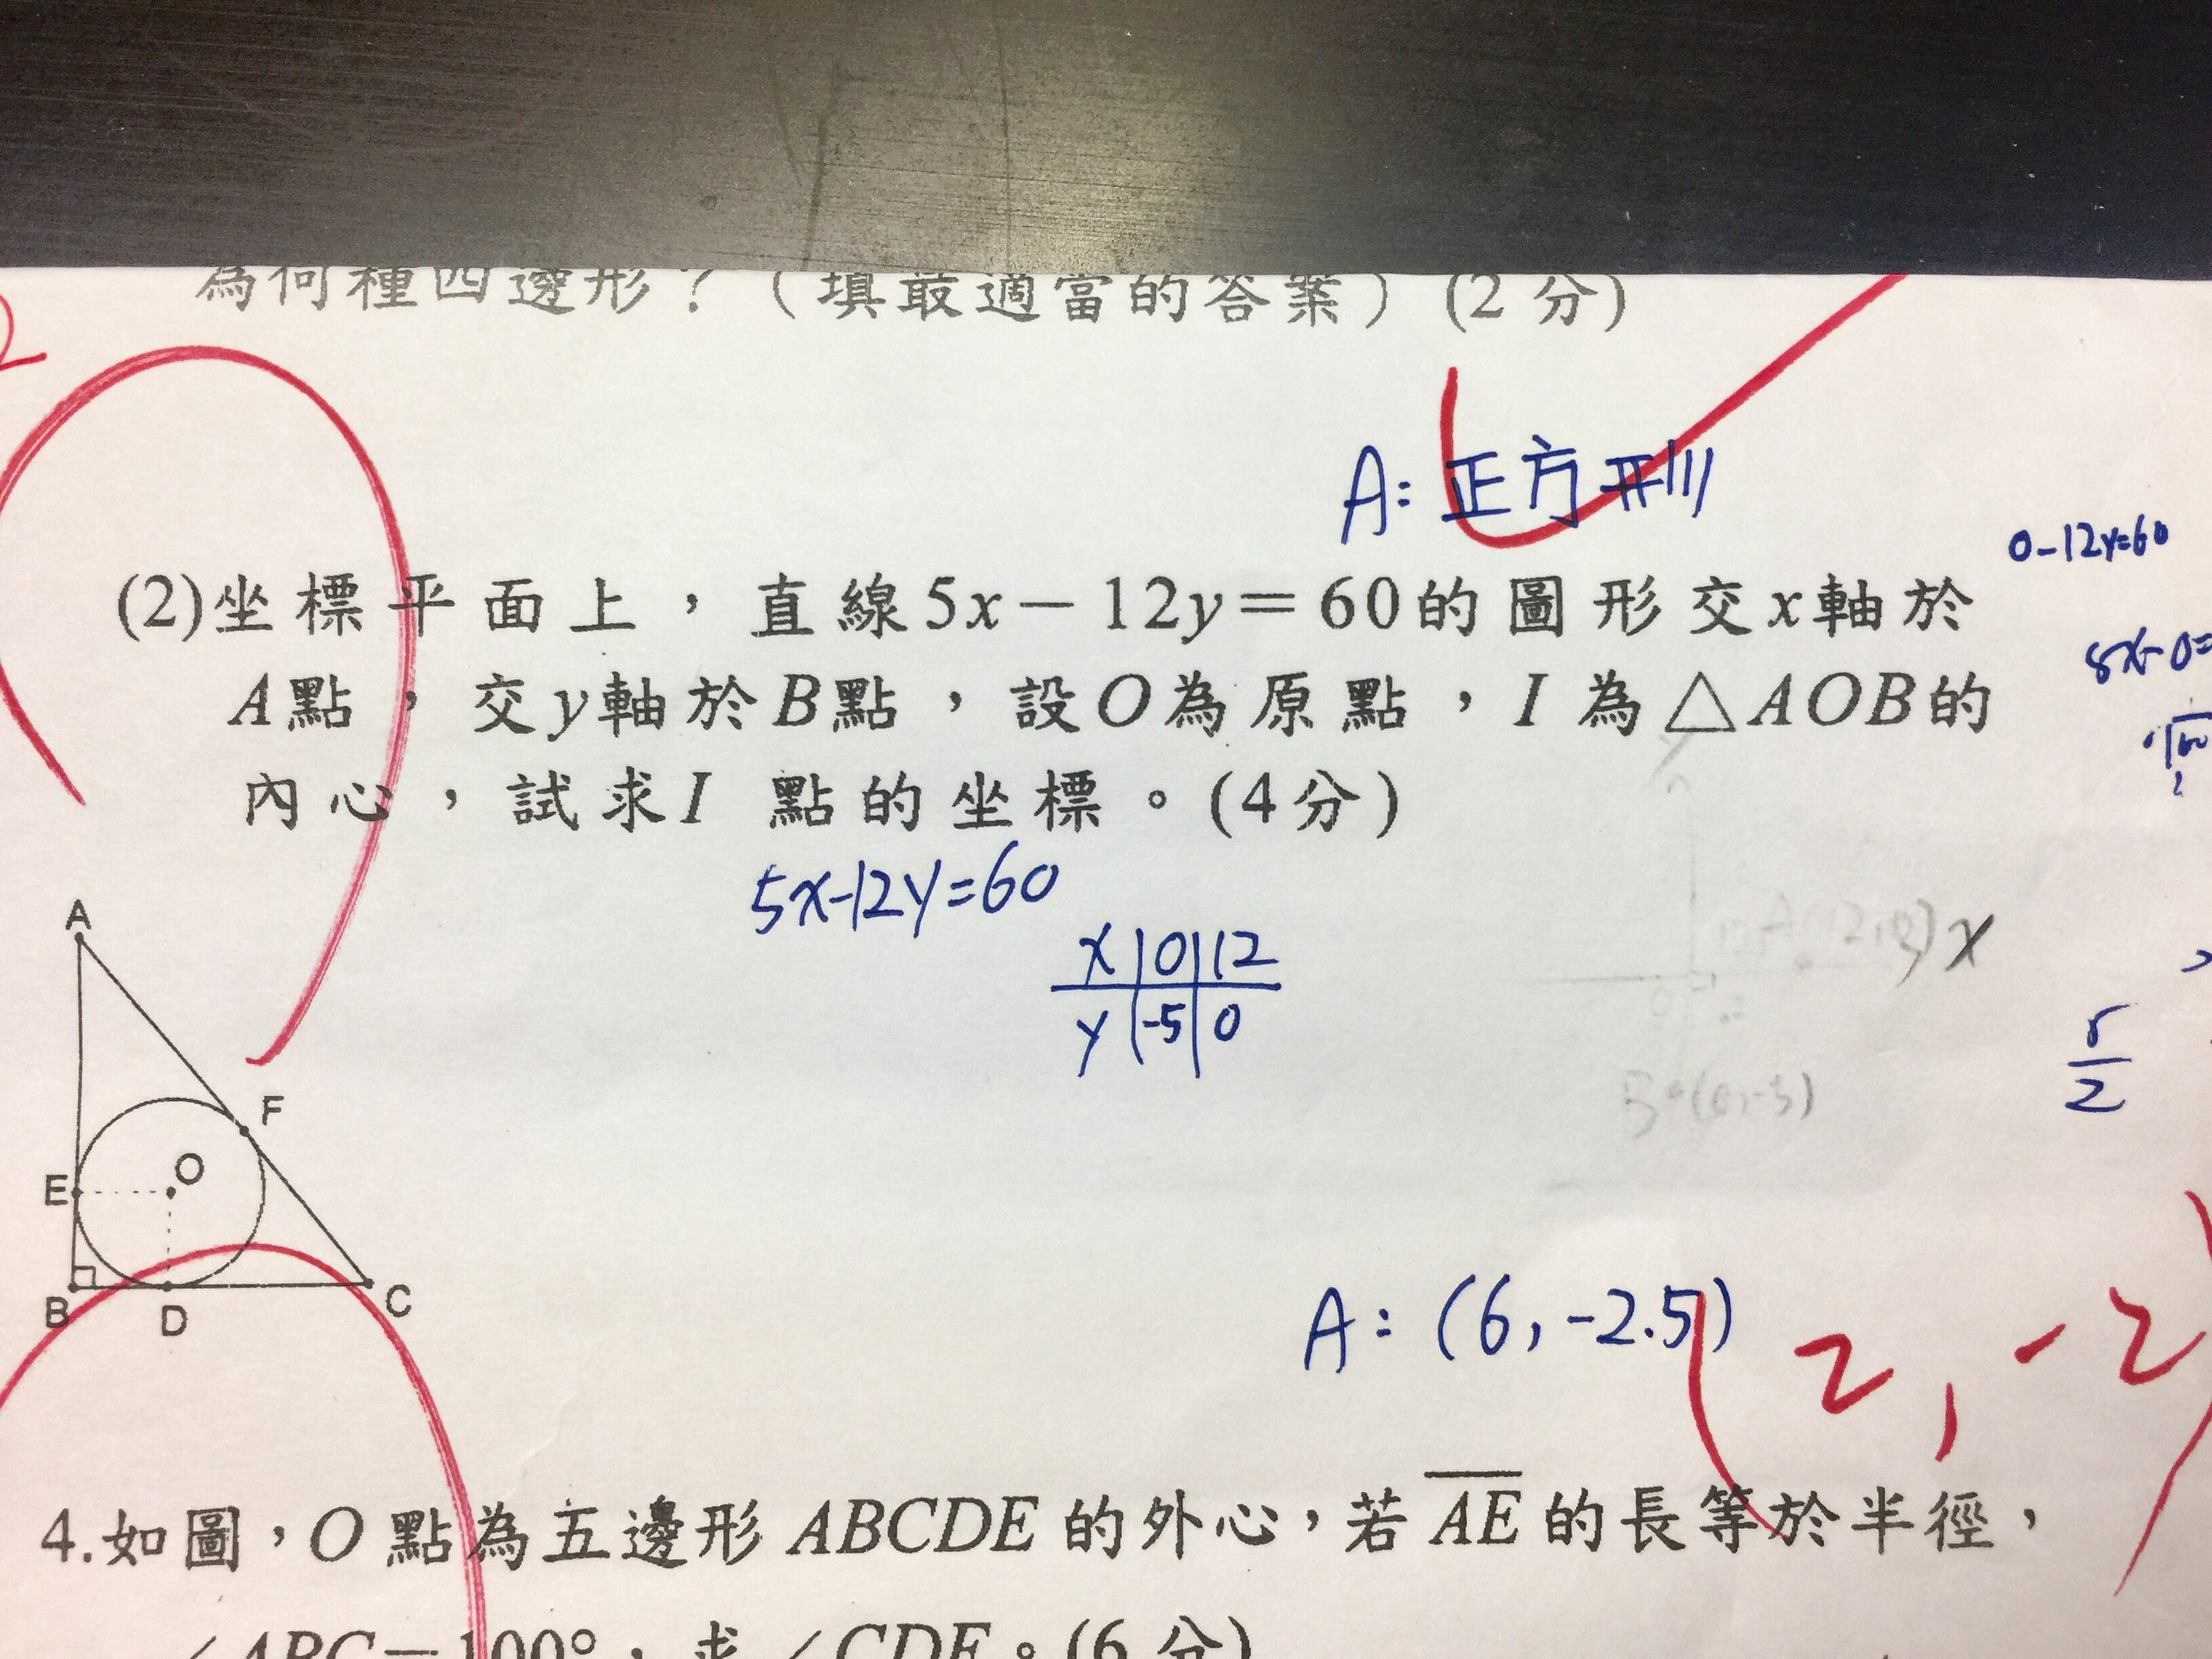 為何種四邊形？（填最適當的答案）(2分)
A: 正方形
0-12y=60
(2)坐標平面上，直線5x－12y＝60的圖形交x軸於
A點，交y軸於B點，設O為原點，I為△AOB的
內心，試求I 點的坐標。(4分)
5x-12y=60
x 0 12
y -5 0
x
5
2
A
F
O
E
B
D
C
A: (6, -2.5)
(2, -2)
4.如圖，O點為五邊形ABCDE的外心，若AE的長等於半徑，
∠ABC＝100°，求∠CDE。(6分)